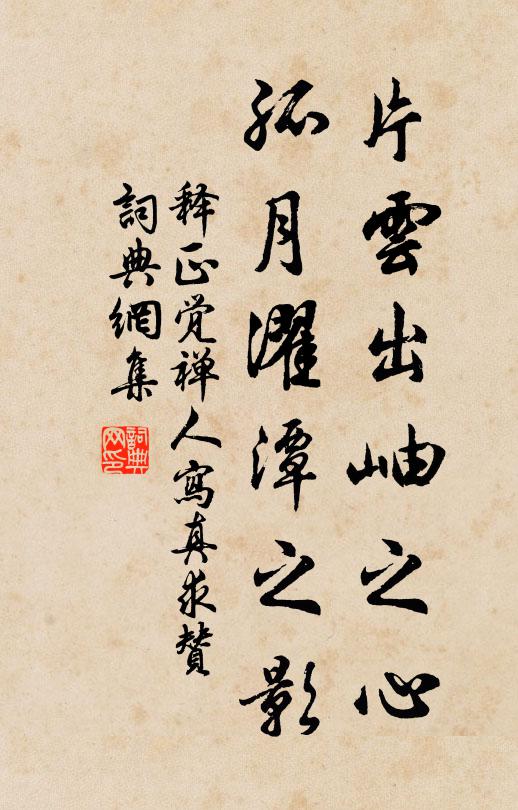 片雲出岫之心
孤月濯潭之影
释正觉禅人寫真求贊
詞典網集
詞典
网印